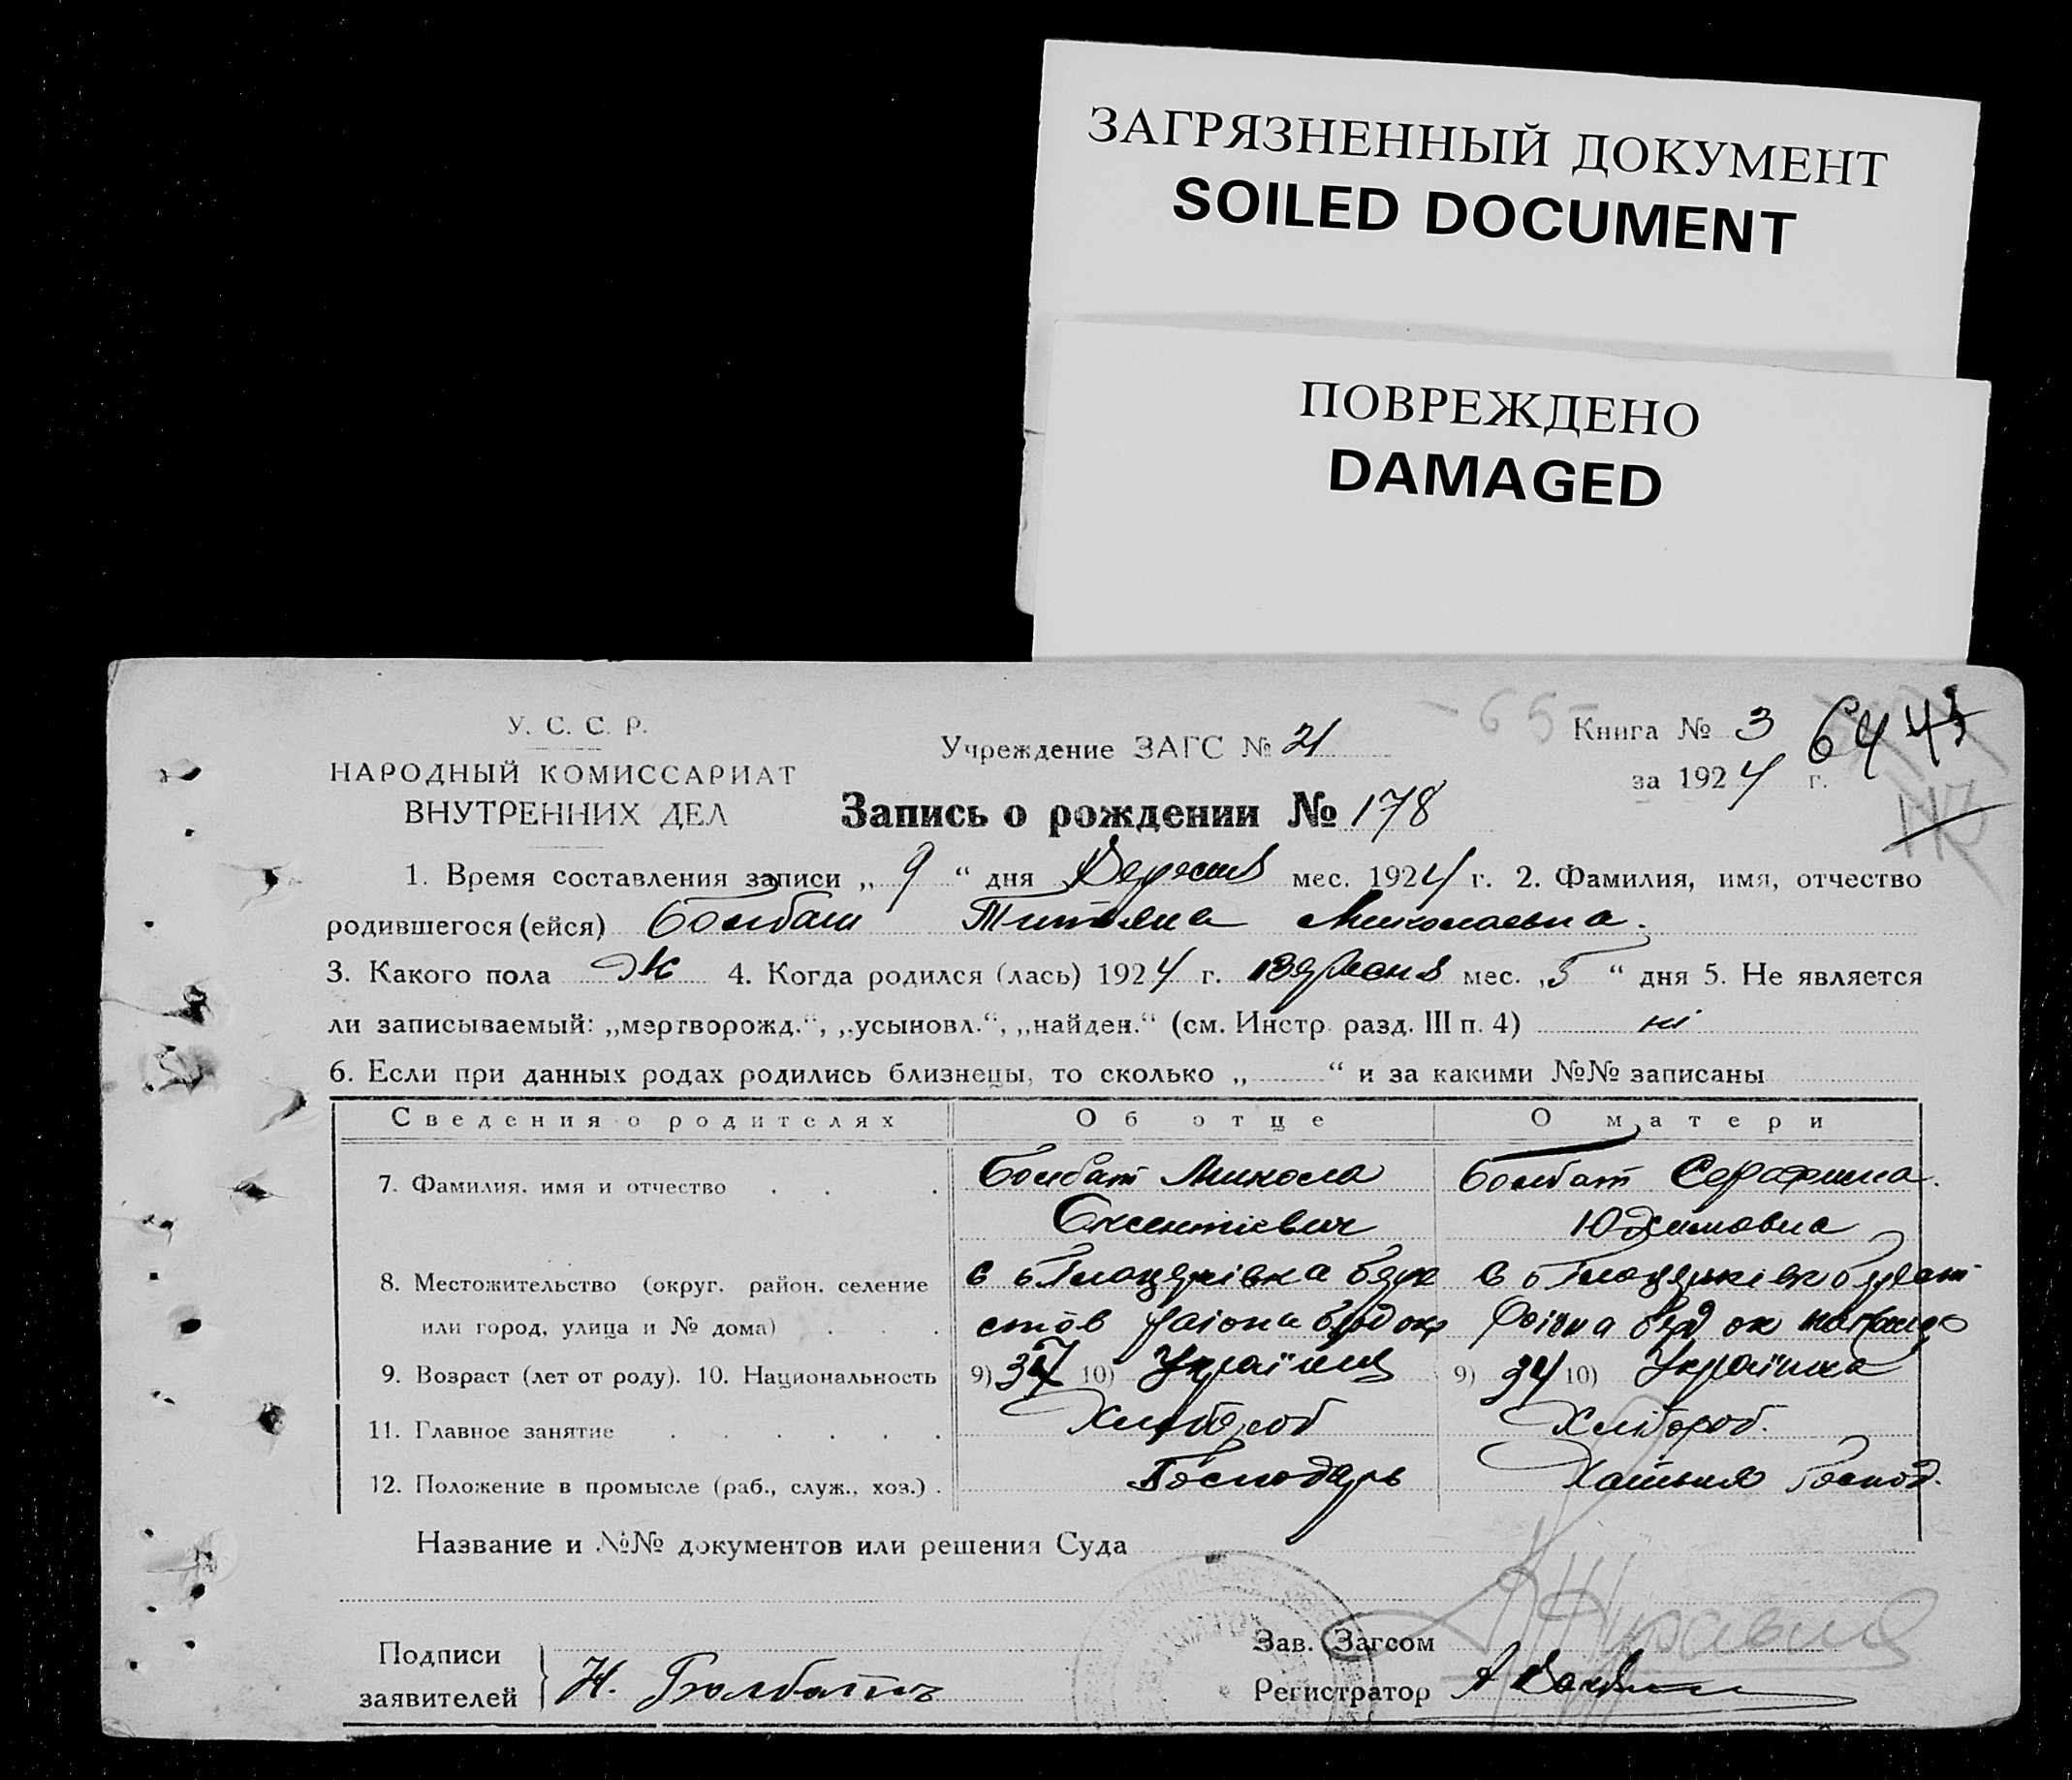 ЗАГРЯЗНЕННЫЙ ДОКУМЕНТ
SOILED DOCUMENT
ПОВРЕЖДЕНО
DAMAGED
- 65 -
У. С. С. Р.
НАРОДНЫЙ КОМИССАРИАТ
ВНУТРЕННИХ ДЕЛ
Учреждение ЗАГС № 21
Книга № 3
64
за 1924 г.
Запись о рождении № 178
1. Время составления записи „ 9 “ дня Вересня мес. 1924 г. 2. Фамилия, имя, отчество
родившегося (ейся) Болбат Титяна Миколаевна.
3. Какого пола Ж 4. Когда родился (лась) 1924 г. Вересня мес. „5“ дня 5. Не является
ли записываемый: „мертворожд.“, „усыновл.“, „найден.“ (см. Инстр. разд. III п. 4) ні
6. Если при данных родах родились близнецы, то сколько „ “ и за какими №№ записаны
Сведения о родителях Об отце О матери
7. Фамилия, имя и отчество Болбат Микола Болбат Серафима
Оксентіевич Юхимовна
8. Местожительство (округ, район, селение
или город, улица и № дома) района
9. Возраст (лет от роду). 10. Национальность 9) 37 10) Українец 9) 34 10) Українка
11. Главное занятие Хлібороб Хлібороб.
12. Положение в промысле (раб., служ., хоз.) Господарь Хатьня Господ.
Название и №№ документов или решения Суда
Подписи
заявителей Н. Болбатъ
Зав. Загсом
Регистратор